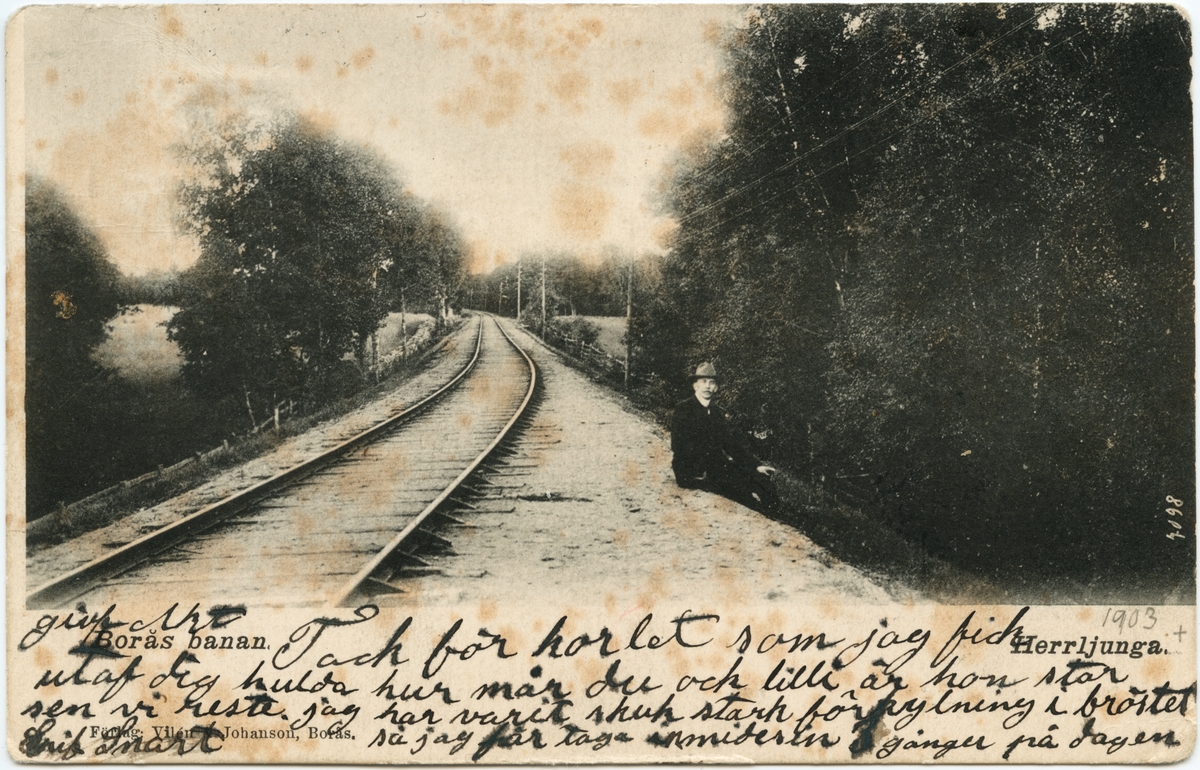 1903
giv Akt
Borås banan. Tack för kortet som jag fick Herrljunga.
utaf dig hulda hur mår du och lilli är hon star
sen vi reste. jag har varit sjuk stark förkylning i bröstet
Förlag: Ylén & Johanson, Borås.
Skrif Snart så jag får taga in midesin 3 gånger på dagen